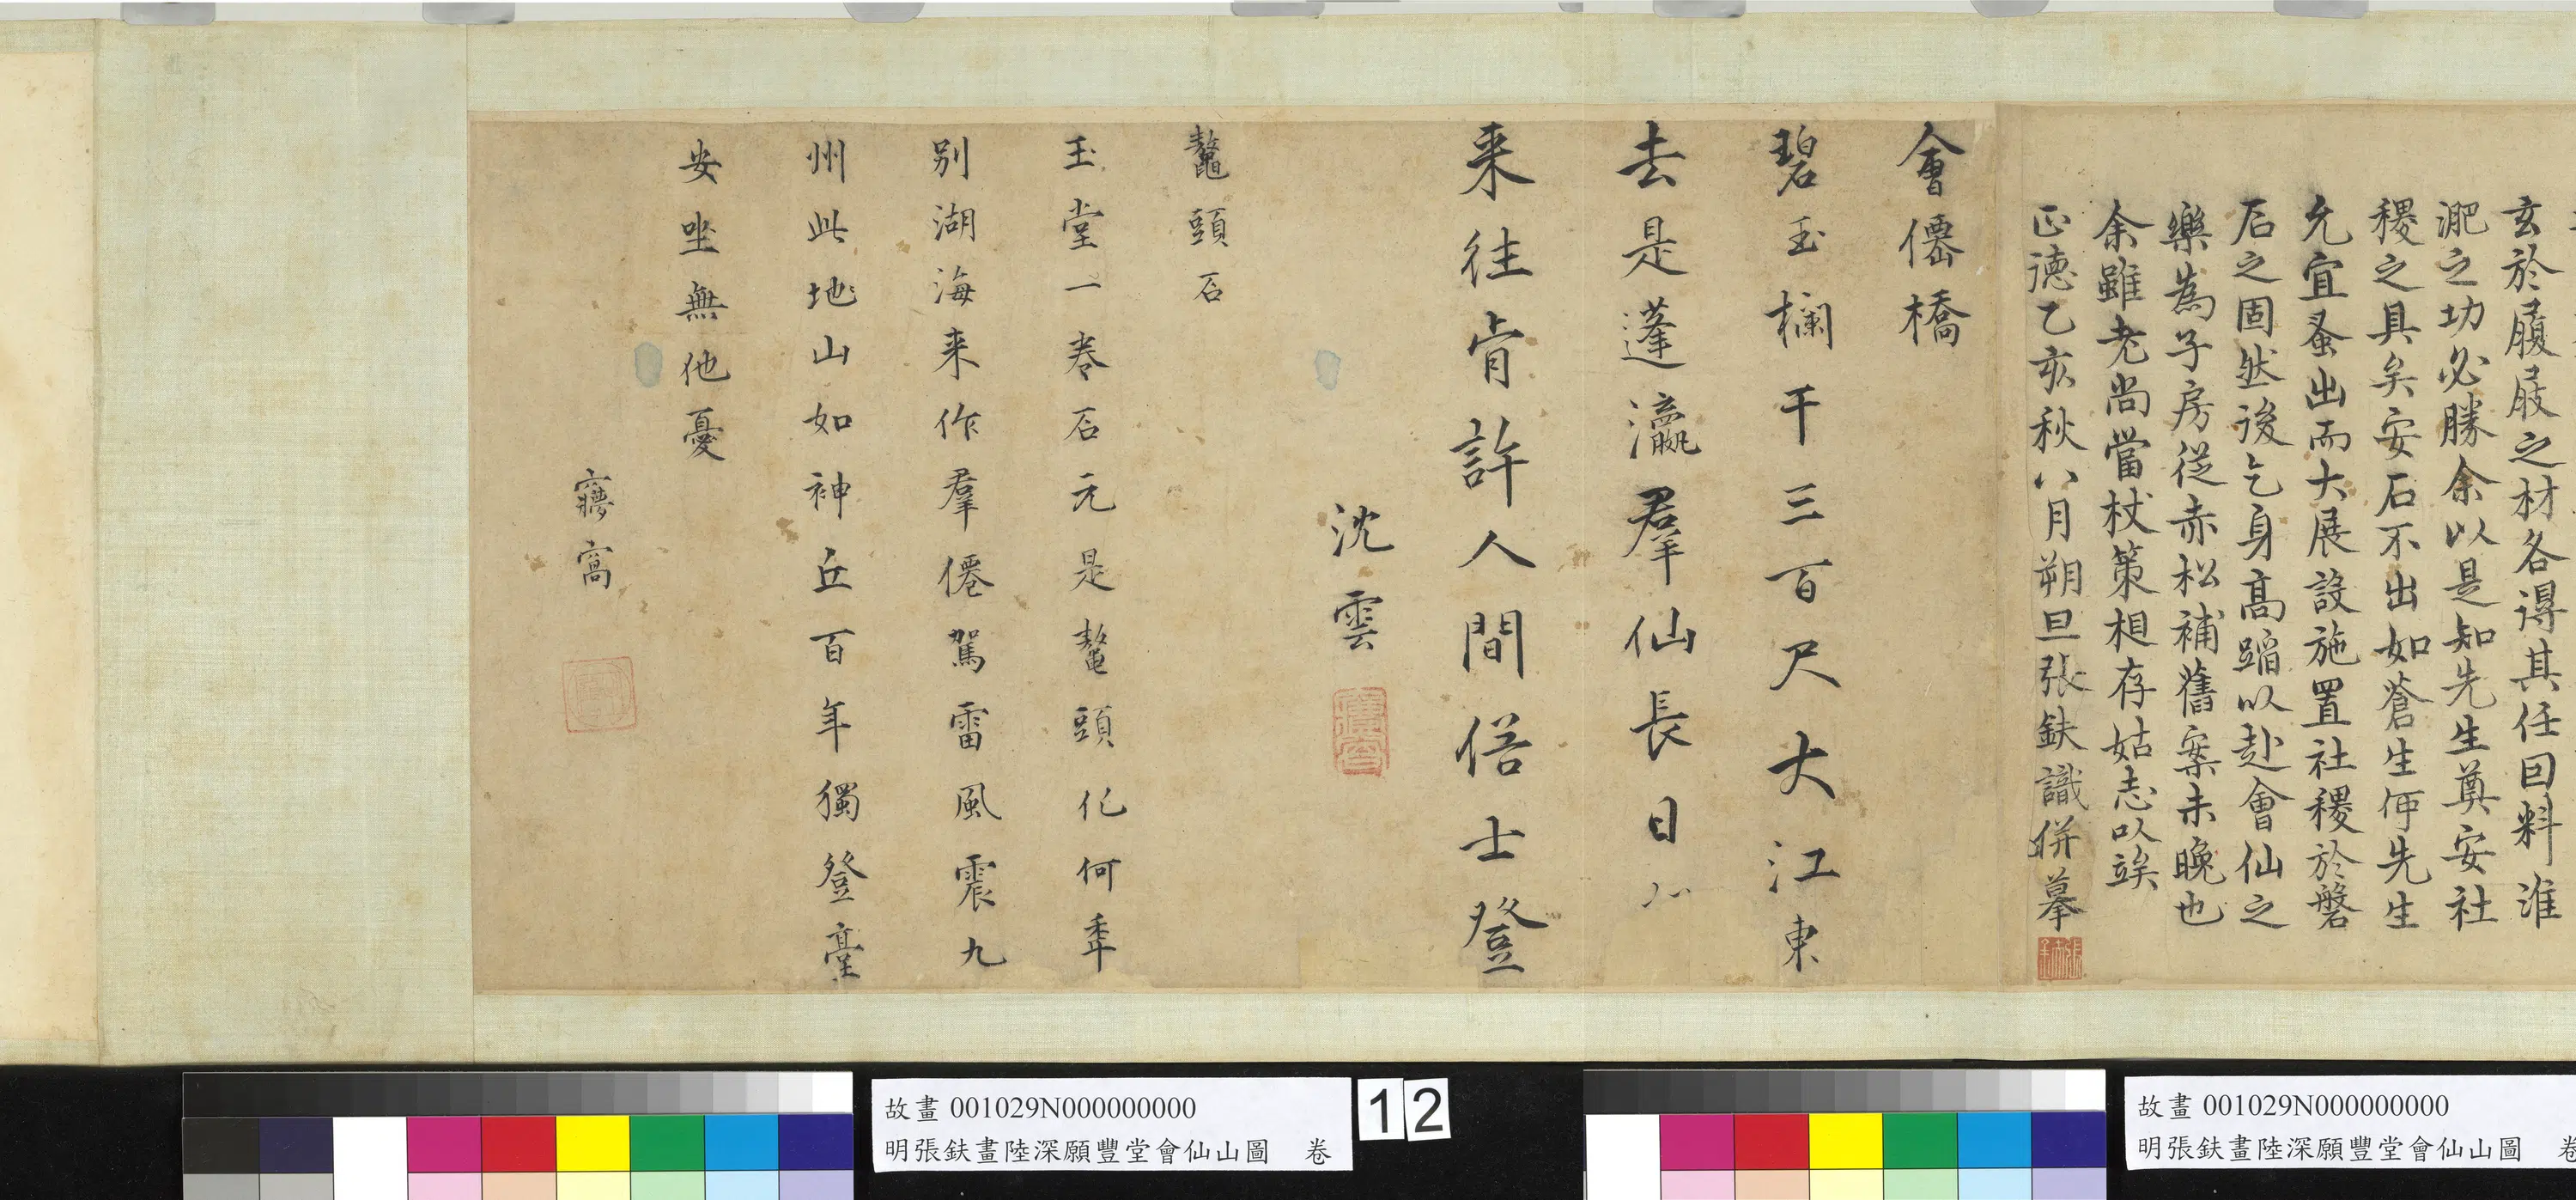 玄於履屐之材各得其任回料淮
淝之功必勝余以是知先生奠安社
稷之具矣安石不出如蒼生何先生
允宜蚤出而大展設施置社稷於磐
石之固然後乞身高蹈以赴會仙之
樂為子房從赤松補舊案未晚也
余雖老尚當杖策相存姑志以竢
正德乙亥秋八月朔旦張鈇識併摹
會僊橋
碧玉欄干三百尺大江東
去是蓬瀛羣仙長日
来往肯許人間俗士登
沈雲
鼇頭石
玉堂一卷石元是鼇頭化何秊
别湖海来作羣僊駕雷風震九
州此地山如神丘百年獨登臺
安坐無他憂
窩
故畫 001029N000000000
明張鈇畫陸深願豐堂會仙山圖 卷
12
故畫 001029N000000000
明張鈇畫陸深願豐堂會仙山圖 卷